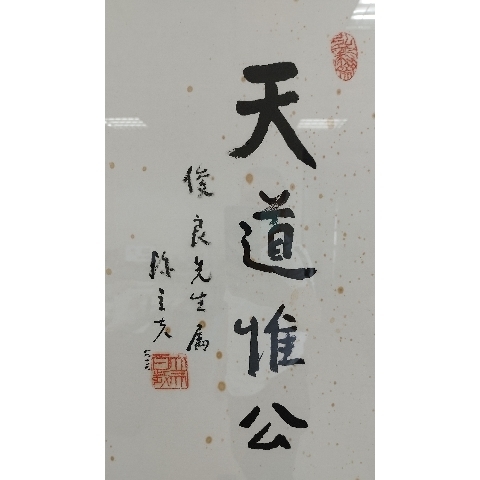 天道惟公
俊良先生屬
陳立夫